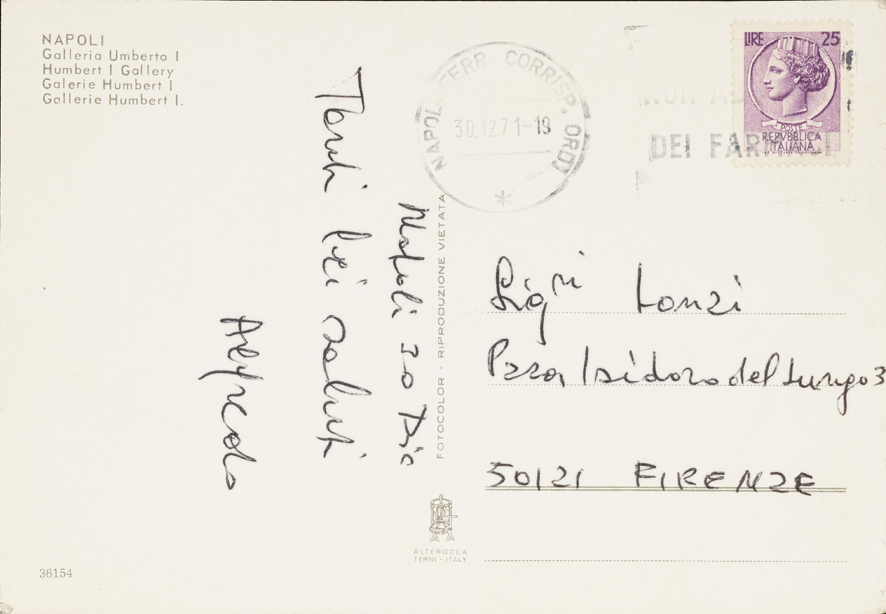 NAPOLI
Galleria Umberto I
Humbert I Gallery
Galerie Humbert I
Gallerie Humbert I.
NAPOLI FERR CORRISP. ORD.
30.12.71-19
DEI FAR
LIRE 25
POSTE
REPVBBLICA
ITALIANA
Napoli 30 Dic
Tanti bei saluti
Alfredo
FOTOCOLOR - RIPRODUZIONE VIETATA
Sigri Lonzi
Pzza Isidoro del Lungo 3
50121 FIRENZE
ALTEROCCA
TERNI - ITALY
36154